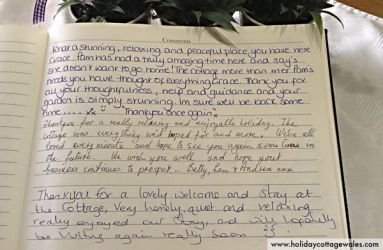 Comments
What a stunning, relaxing and peaceful place you have here
Grace. Pam has had a truly amazing time here and say's
she doesn't want to go home! The cottage more than met Pam's
needs you have thought of everything Grace. Thank you for
all your thoughtfulness, help and guidance and your
garden is simply stunning. Im sure we'll be back some
time..... Thankyou once again
Thankyou for a really relaxing and enjoyable holiday. The
cottage was everything we'd hoped for and more. We've all
loved every minute and hope to see you again some time in
the future. We wish you well and hope your
business continues to prosper. Betty, Ken & Andrea xxx
Thankyou for a lovely welcome and stay at
the Cottage, Very homely, quiet and relaxing
really enjoyed our stay, and will hopefully
be visiting again really soon
www.holidaycottagewales.com